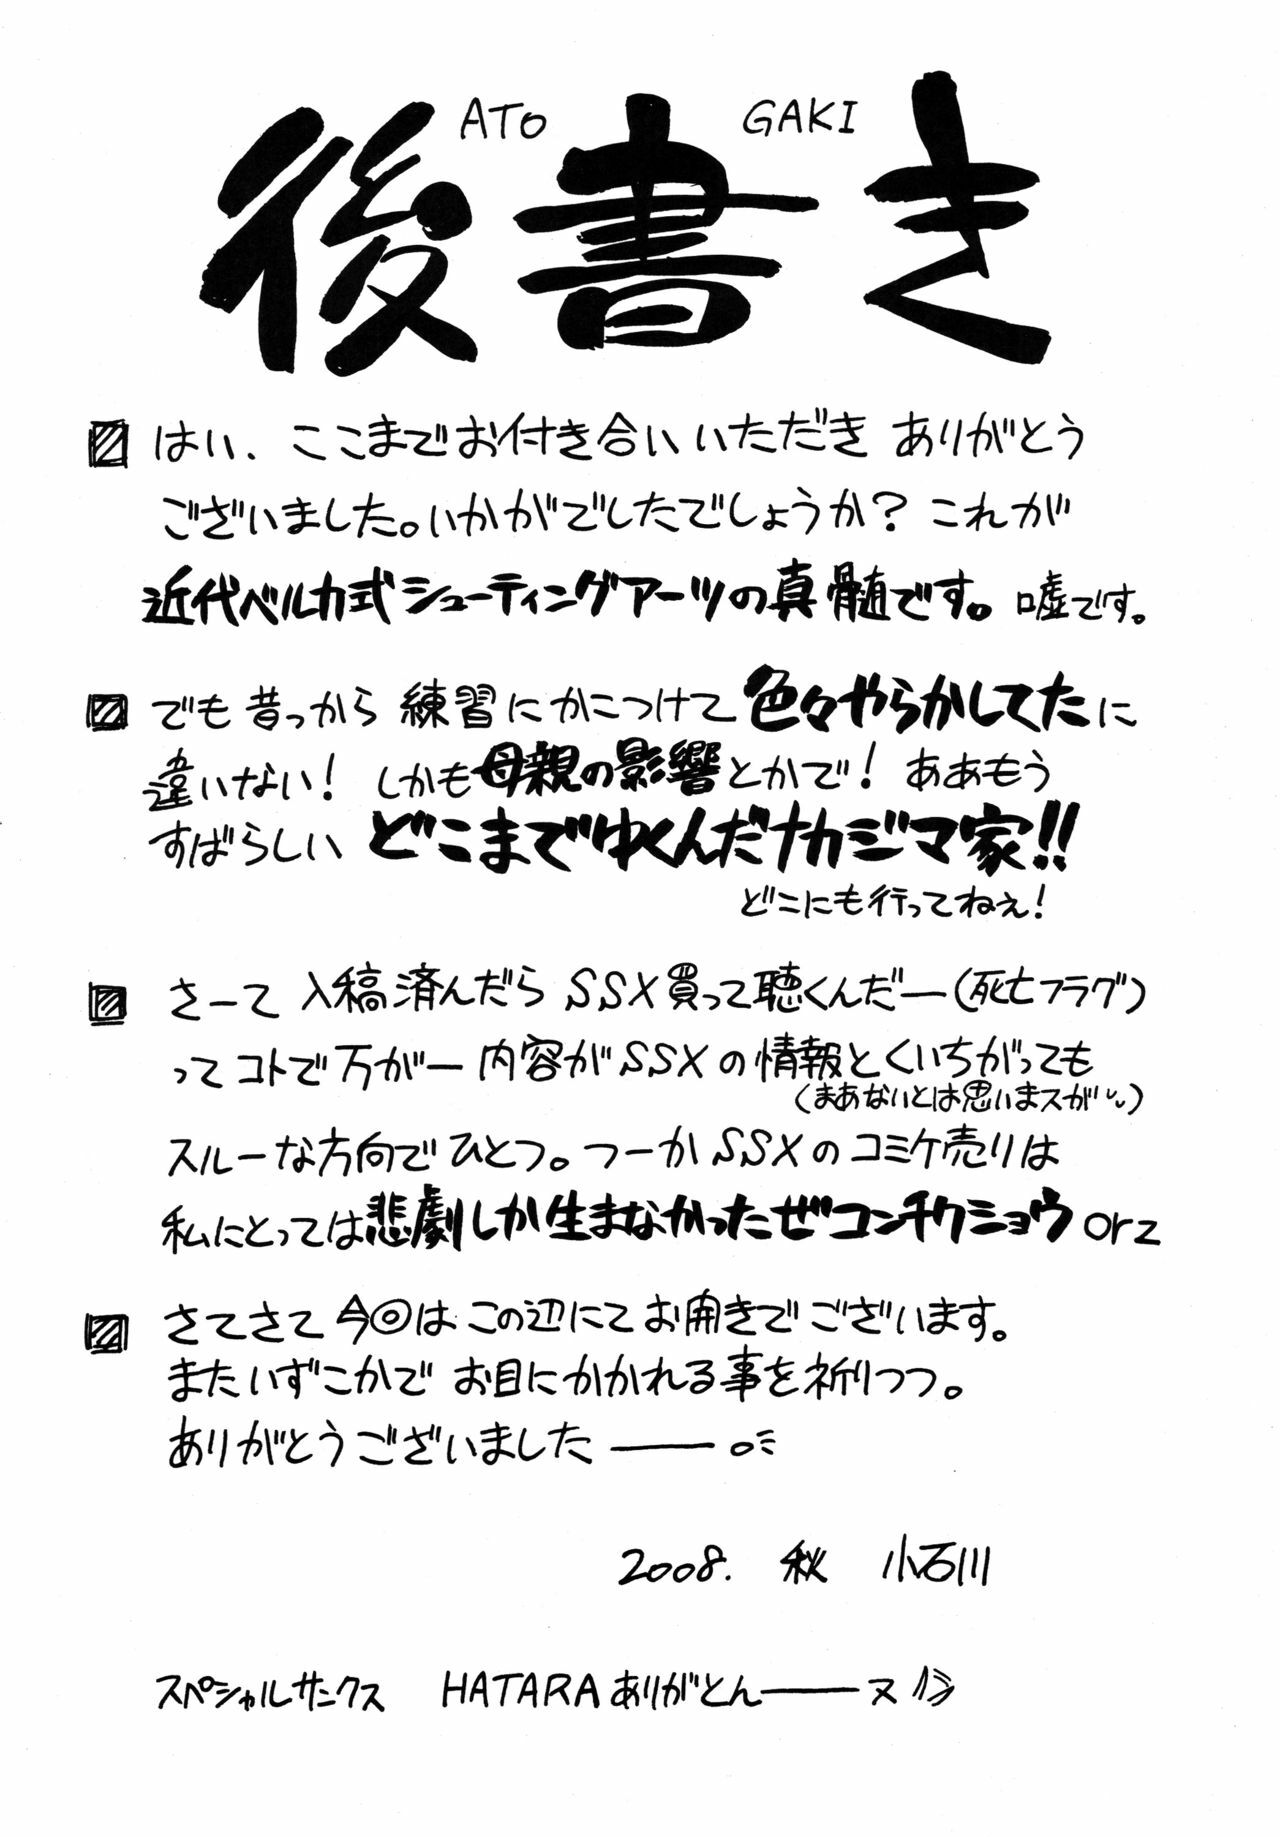 ATO GAKI
後書き
はい、ここまでお付き合いいただき ありがとう
ございました。いかがでしたでしょうか？これが
近代ベルカ式シューティングアーツの真髄です。嘘です。
でも昔っから練習にかこつけて色々やらかしてたに
違いない！しかも母親の影響とかで！ああもう
すばらしい どこまでゆくんだナカジマ家!!
どこにも行ってねぇ！
さーて 入稿済んだら SSX買って聴くんだー（死亡フラグ）
ってコトで万が一内容がSSXの情報とくいちがっても
（まあないとは思いまスが）
スルーな方向でひとつ。つーかSSXのコミケ売りは
私にとっては悲劇しか生まなかったぜコンチクショウorz
さてさて今回はこの辺にてお開きでございます。
またいずこかで お目にかかれる事を祈りつつ。
ありがとうございました――o
2008. 秋 小石川
スペシャルサンクス HATARAありがとん――ヌ